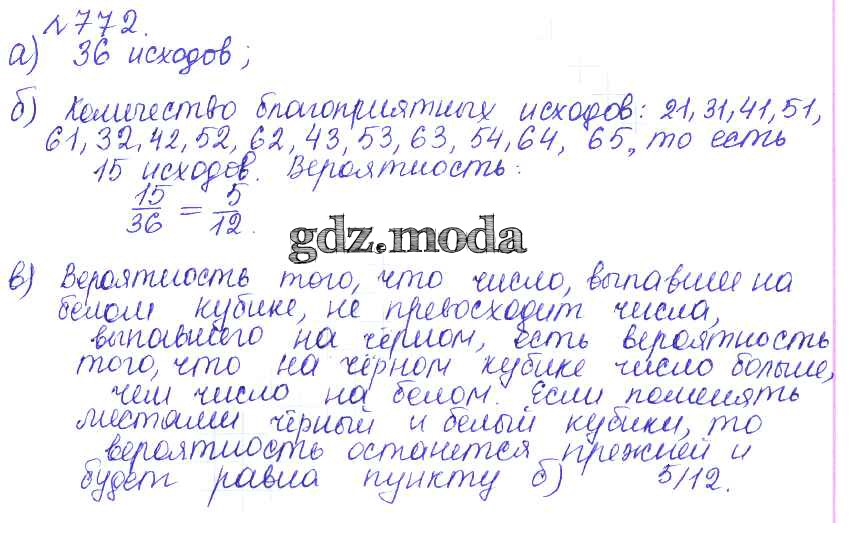 №772.
а) 36 исходов;
б) Количество благоприятных исходов: 21, 31, 41, 51,
61, 32, 42, 52, 62, 43, 53, 63, 54, 64, 65, то есть
15 исходов. Вероятность:
15/36 = 5/12.
gdz.moda
в) Вероятность того, что число, выпавши на
белом кубике, не превосходит числа,
выпавшего на чёрном, есть вероятность
того, что на чёрном кубике число больше,
чем число на белом. Если поменять
местами чёрный и белый кубики, то
вероятность останется прежней и
будет равна пункту б) 5/12.